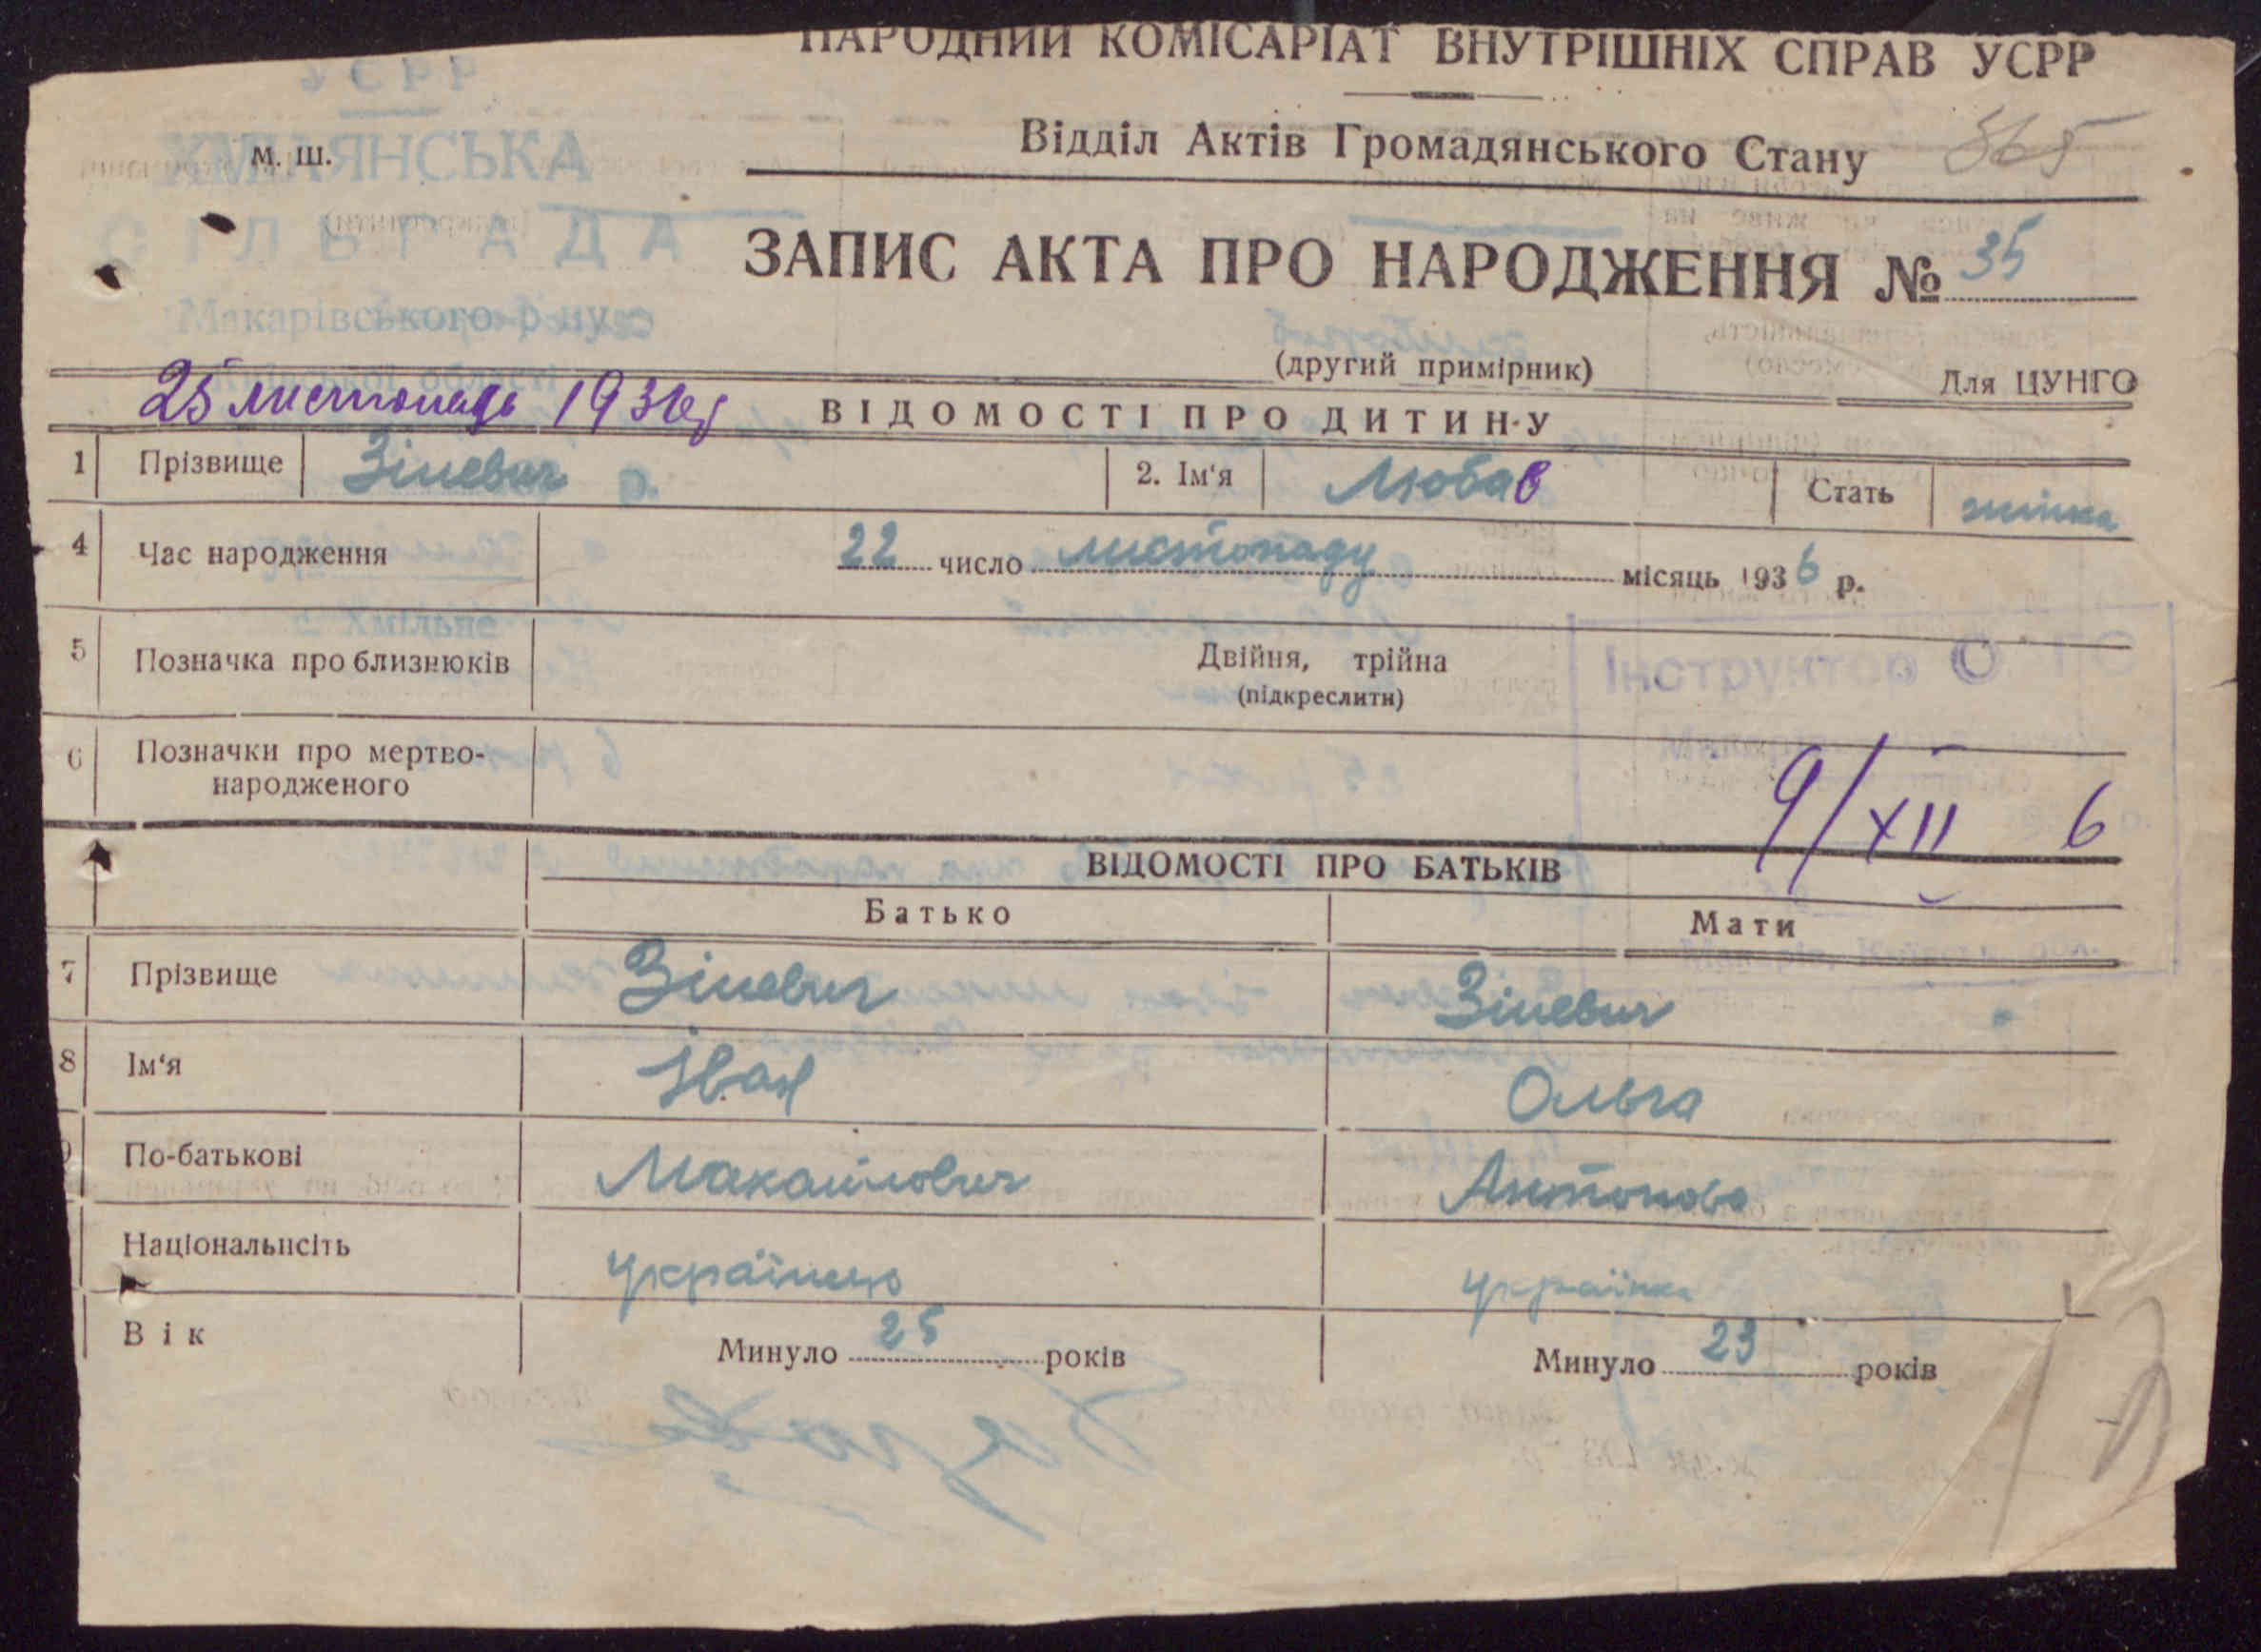 НАРОДНИЙ КОМІСАРІАТ ВНУТРІШНІХ СПРАВ УСРР
УСРР
Відділ Актів Громадянського Стану 365
м. ш.
ХМІЛЯНСЬКА
СІЛЬРАДА
ЗАПИС АКТА ПРО НАРОДЖЕННЯ № 35
Макарівського р-ну
(другий примірник)
Для ЦУНГО
Київської області
25 листопада 1936 р
ВІДОМОСТІ ПРО ДИТИНУ
1 Прізвище Зіневич р. 2. Ім'я Люба Стать жінка
4 Час народження 22 число листопаду місяць 1936 р.
с. Хмільне
5 Позначка про близнюків Двійня, трійна
(підкреслити)
Інструктор
6 Позначки про мертво-
народженого
9/XII 6
ВІДОМОСТІ ПРО БАТЬКІВ
Батько Мати
7 Прізвище Зіневич Зіневич
8 Ім'я Іван Ольга
9 По-батькові Макайлович Антонова
Національисіть українець українка
Вік Минуло 25 років Минуло 23 років